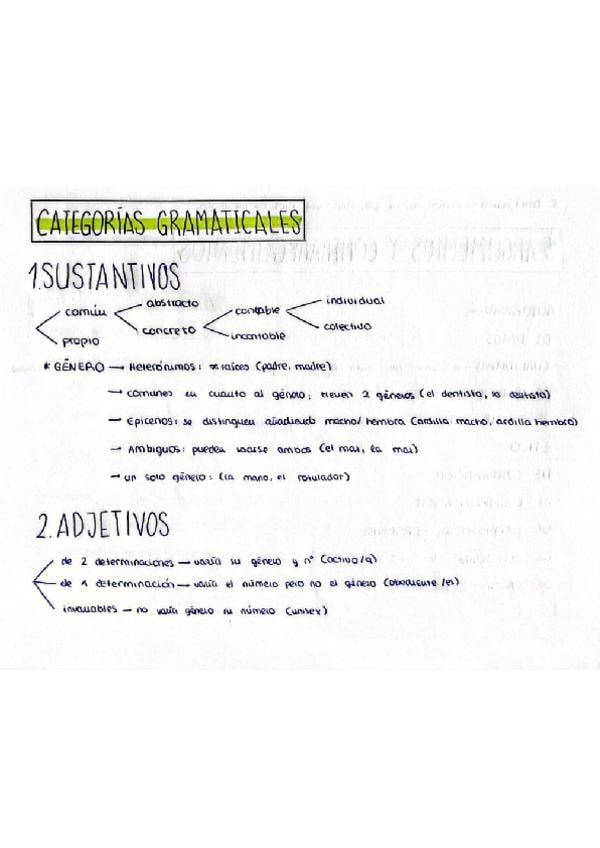 CATEGORÍAS GRAMATICALES
1. SUSTANTIVOS
común abstracto concreto contable incontable individual colectivo
propio
* GÉNERO → Heterónimos: ≠ raíces (padre, madre)
→ comunes en cuanto al género: tienen 2 géneros (el dentista, la dentista)
→ Epicenos: se distinguen añadiendo macho/hembra (ardilla macho, ardilla hembra)
→ Ambiguos: pueden usarse ambos (el mar, la mar)
→ un solo género: (la mano, el rotulador)
2. ADJETIVOS
de 2 determinaciones — varía su género y nº (activo/a)
de 1 determinación — varía el número pero no el género (obediente/es)
invariables — no varía género ni número (unisex)